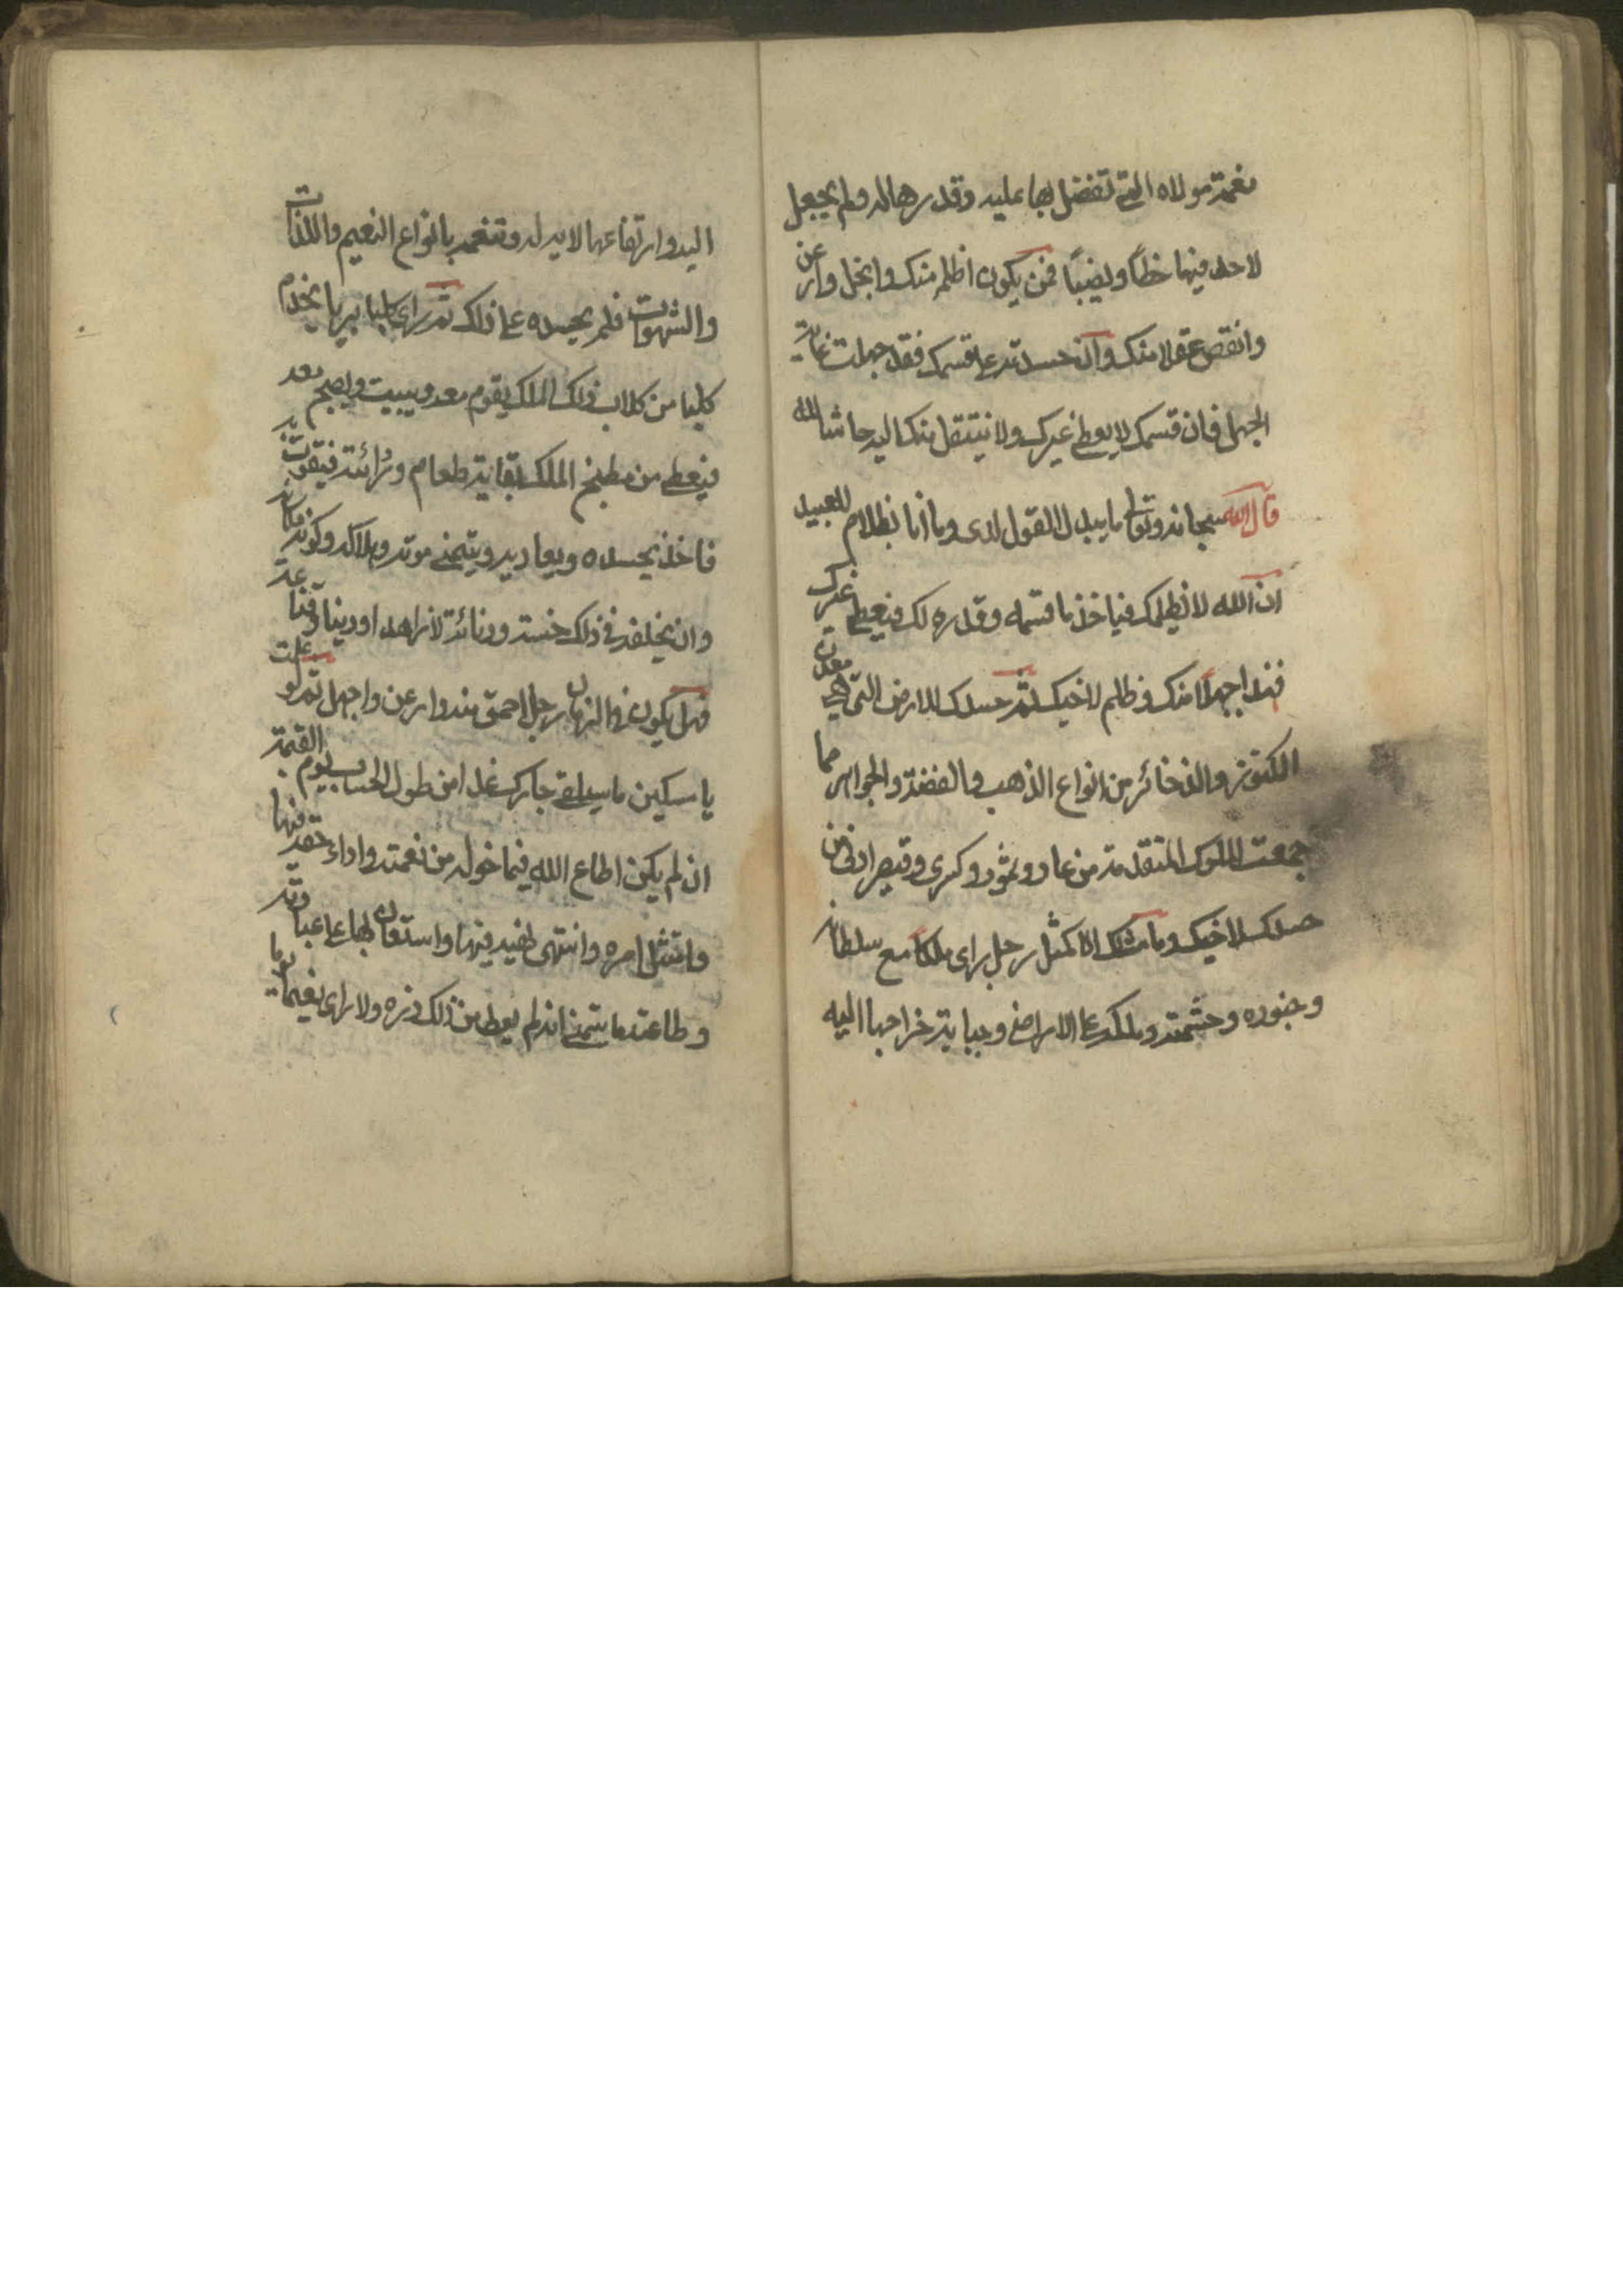 نعمة مولاه التي تفضل بها عليه وقدرها له ولم يجعل
لاحد فيها حظاً ونصيباً فمن يكون اظلم منك وابخل وارعن
وانقص عقلا منك وان حسدته على قسمك فقد جهلت غاية
الجهل فان قسمك لا يعطى غيرك ولا ينتقل منك اليه حاشا لله
قال الله سبحانه وتعالى ما يبدل القول لدى وما انا بظلام للعبيد
ان الله لا يظلمك فياخذ ما قسمه وقدره لك فيعطى غيرك
فهذا جهلا منك وظلم لاخيك ثم حسدك للارض التى هي معدن
الكنوز والذخائر من انواع الذهب والفضة والجواهر مما
جمعت الملوك المتقدمة من عاد وثمود وكسرى وقيصر اولى من
حسدك لاخيك وما مثلك الا كمثل رجل راى ملكا مع سلطانه
وجنوده وحشمته وملكه على الاراضي وجباية خراجها اليه
اليه وارتفاعها لديه له وتنعمه بانواع النعيم واللذات
والشهوات فلم يحسده على ذلك ثم راى كلبا بريا يخدم
كلبا من كلاب ذلك الملك يقوم معه ويبيت ويصبح معه
فيعطى من مطبخ الملك بقاية طعام ورائته فيتقوت به
فاخذ يحسده ويعاديه ويتمنى موته وهلاكه وكونه مكانه
وان يخلفه في ذلك خسة ودنائة لا زاهدا ودينا وقناعة
فهل يكون في الزمان رجل احمق منه وارعن واجهل ثم لو علمت
يا مسكين ما سيلقى جارك غدا من طول الحساب يوم القيمة
ان لم يكن اطاع الله فيما خوله من نعمته واداء حقه فيها
وامتثل امره وانتهى نهيه فيها واستعان بها على عبادته
وطاعته ما يتمنى انه لم يعط من ذلك ذره ولا راى نعيما يوما